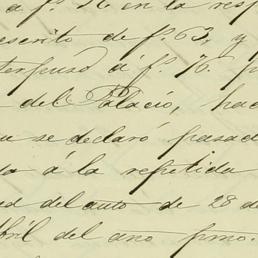 a f.º 26 en la resp
escrito de f.º 63, y
terpuso á f.º 76. p
del Palacio, hac
u se declaró pasad
a á la repetida
ud del auto de 28 de
bril del ano pmo.